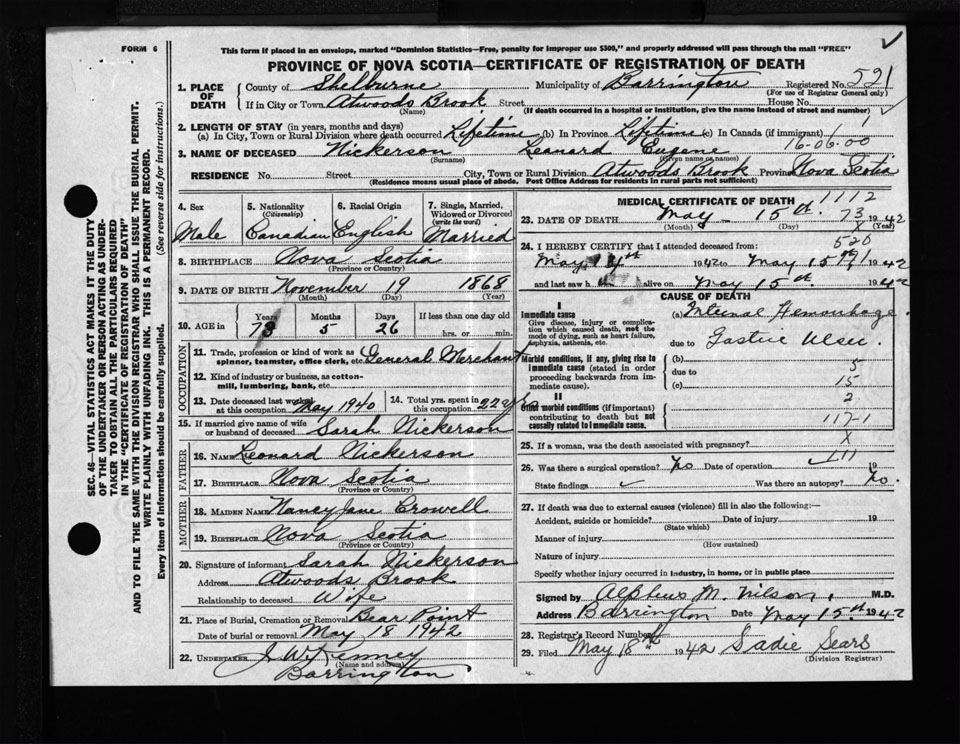 FORM 6
This form if placed in an envelope, marked "Dominion Statistics—Free, penalty for improper use $300," and properly addressed will pass through the mail "FREE"
PROVINCE OF NOVA SCOTIA—CERTIFICATE OF REGISTRATION OF DEATH
SEC. 46—VITAL STATISTICS ACT MAKES IT THE DUTY
OF THE UNDERTAKER OR PERSON ACTING AS UNDER-
TAKER TO OBTAIN ALL THE PARTICULARS REQUIRED
IN THE "CERTIFICATE OF REGISTRATION OF DEATH"
AND TO FILE THE SAME WITH THE DIVISION REGISTRAR WHO SHALL ISSUE THE BURIAL PERMIT.
WRITE PLAINLY WITH UNFADING INK. THIS IS A PERMANENT RECORD.
Every item of Information should be carefully supplied. (See reverse side for instructions.)
1. PLACE OF DEATH County of Shelburne Municipality of Barrington Registered No. 521
(For use of Registrar General only)
If in City or Town Atwoods Brook Street House No.
(Name) (If death occurred in a hospital or institution, give the name instead of street and number)
2. LENGTH OF STAY (in years, months and days)
(a) In City, Town or Rural Division where death occurred Lifetime (b) In Province Lifetime (c) In Canada (if immigrant)
16-06-00
3. NAME OF DECEASED Nickerson Leonard Eugene
(Surname) (Given name or names)
RESIDENCE No. Street City, Town or Rural Division Atwoods Brook Province Nova Scotia
(Residence means usual place of abode. Post Office Address for residents in rural parts not sufficient)
4. Sex Male
5. Nationality (Citizenship) Canadian
6. Racial Origin English
7. Single, Married, Widowed or Divorced (write the word) Married
8. BIRTHPLACE Nova Scotia
(Province or Country)
9. DATE OF BIRTH November 19 1868
(Month) (Day) (Year)
10. AGE in Years 73 Months 5 Days 26 If less than one day old
hrs. or min.
OCCUPATION
11. Trade, profession or kind of work as spinner, teamster, office clerk, etc. General Merchant
12. Kind of industry or business, as cotton-mill, lumbering, bank, etc.
13. Date deceased last worked at this occupation May 1940 14. Total yrs. spent in this occupation 22 yrs
15. If married give name of wife or husband of deceased Sarah Nickerson
FATHER
16. NAME Leonard Nickerson
17. BIRTHPLACE Nova Scotia
(Province or Country)
MOTHER
18. MAIDEN NAME Nancy Jane Crowell
19. BIRTHPLACE Nova Scotia
(Province or Country)
20. Signature of informant Sarah Nickerson
Address Atwoods Brook
Relationship to deceased Wife
21. Place of Burial, Cremation or Removal Bear Point
Date of burial or removal May 18 1942
22. UNDERTAKER J W Kenney
(Name and address)
Barrington
MEDICAL CERTIFICATE OF DEATH 1112
23. DATE OF DEATH May 15th. 73 1942
(Month) (Day) (Year)
24. I HEREBY CERTIFY that I attended deceased from: 520
May 14th 1942 to May 15th 1942
and last saw h alive on May 15th 1942
CAUSE OF DEATH
I
Immediate cause (a) Internal Hemorrhage
Give disease, injury or complication which caused death, not the mode of dying, such as heart failure, asphyxia, asthenia, etc.
due to Gastric Ulcer.
Morbid conditions, if any, giving rise to immediate cause (stated in order proceeding backwards from immediate cause).
(b) 5
due to
(c) 15
II 2
Other morbid conditions (if important) contributing to death but not causally related to immediate cause.
117-1
25. If a woman, was the death associated with pregnancy? X
26. Was there a surgical operation? No Date of operation 19
State findings Was there an autopsy? No.
27. If death was due to external causes (violence) fill in also the following:—
Accident, suicide or homicide? Date of injury 19
(State which)
Manner of injury
(How sustained)
Nature of injury
Specify whether injury occurred in industry, in home, or in public place
Signed by Alpheus M. Wilson, M.D.
Address Barrington Date May 15th 1942
28. Registrar's Record Number
29. Filed May 18th 1942 Sadie Sears
(Division Registrar)